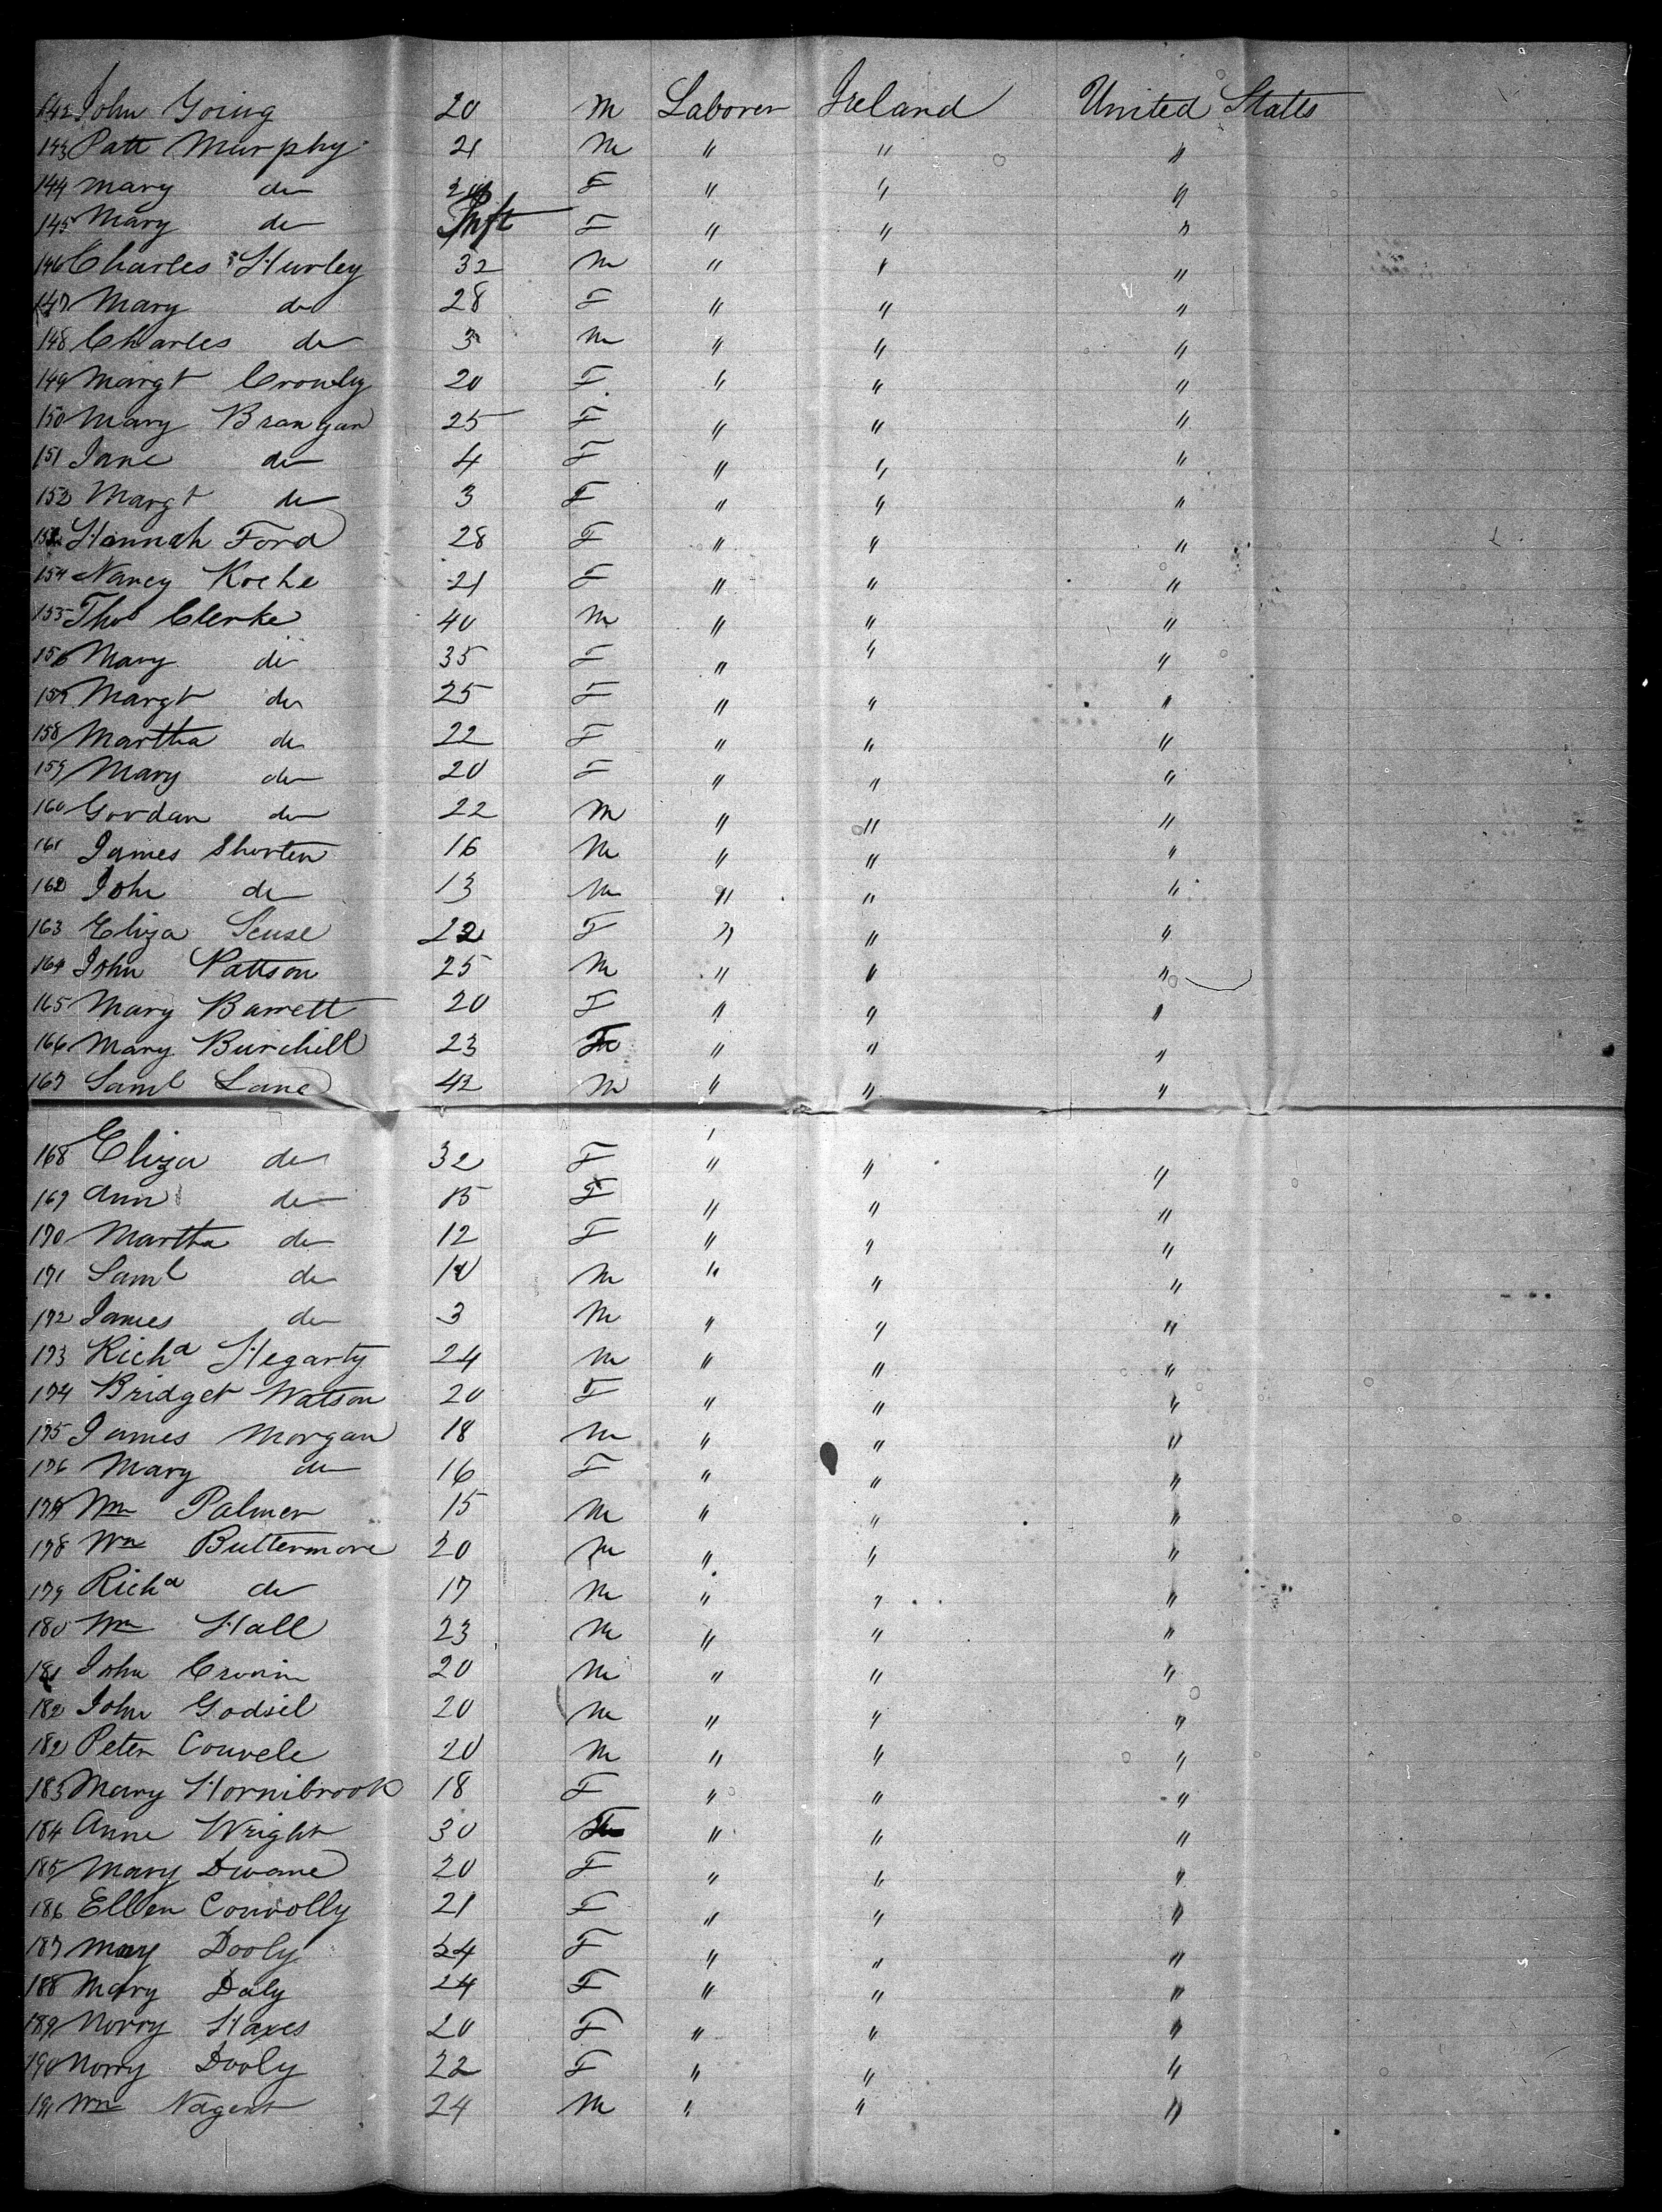 142 John Going 20 M Laborer Ireland United States
143 Patt Murphy 21 M " " "
144 Mary do F " " "
145 Mary do Inft F " " "
146 Charles Hurley 32 M " " "
147 Mary do 28 F " " "
148 Charles do 3 M " " "
149 Margt Crowly 20 F " " "
150 Mary Brangan 25 F " " "
151 Jane do 4 F " " "
152 Margt do 3 F " " "
153 Hannah Ford 28 F " " "
154 Nancy Roche 21 F " " "
155 Thos Clerke 40 M " " "
156 Mary do 35 F " " "
157 Margt do 25 F " " "
158 Martha do 22 F " " "
159 Mary do 20 F " " "
160 Gordan do 22 M " " "
161 James Shorten 16 M " " "
162 John do 13 M " " "
163 Eliza 22 F " " "
164 John Pattson 25 M " " "
165 Mary Barrett 20 F " " "
166 Mary Burchill 23 F " " "
167 Saml Lane 42 M " " "
168 Eliza do 32 F " " "
169 Ann do 15 F " " "
170 Martha do 12 F " " "
171 Saml do 10 M " " "
172 James do 3 M " " "
173 Richd Hegarty 24 M " " "
174 Bridget Watson 20 F " " "
175 James Morgan 18 M " " "
176 Mary do 16 F " " "
177 Wm Palmer 15 M " " "
178 Wm Buttermore 20 M " " "
179 Richd do 17 M " " "
180 Wm Hall 23 M " " "
181 John Cronin 20 M " " "
182 John Godsil 20 M " " "
182 Peter 20 M " " "
183 Mary Hornibrook 18 F " " "
184 Anne Wright 30 F " " "
185 Mary Dwane 20 F " " "
186 Ellen Connolly 21 F " " "
187 Mary Dooly 24 F " " "
188 Mary Daly 24 F " " "
189 Norry Hayes 20 F " " "
190 Norry Dooly 22 F " " "
191 Wm Nagent 24 M " " "